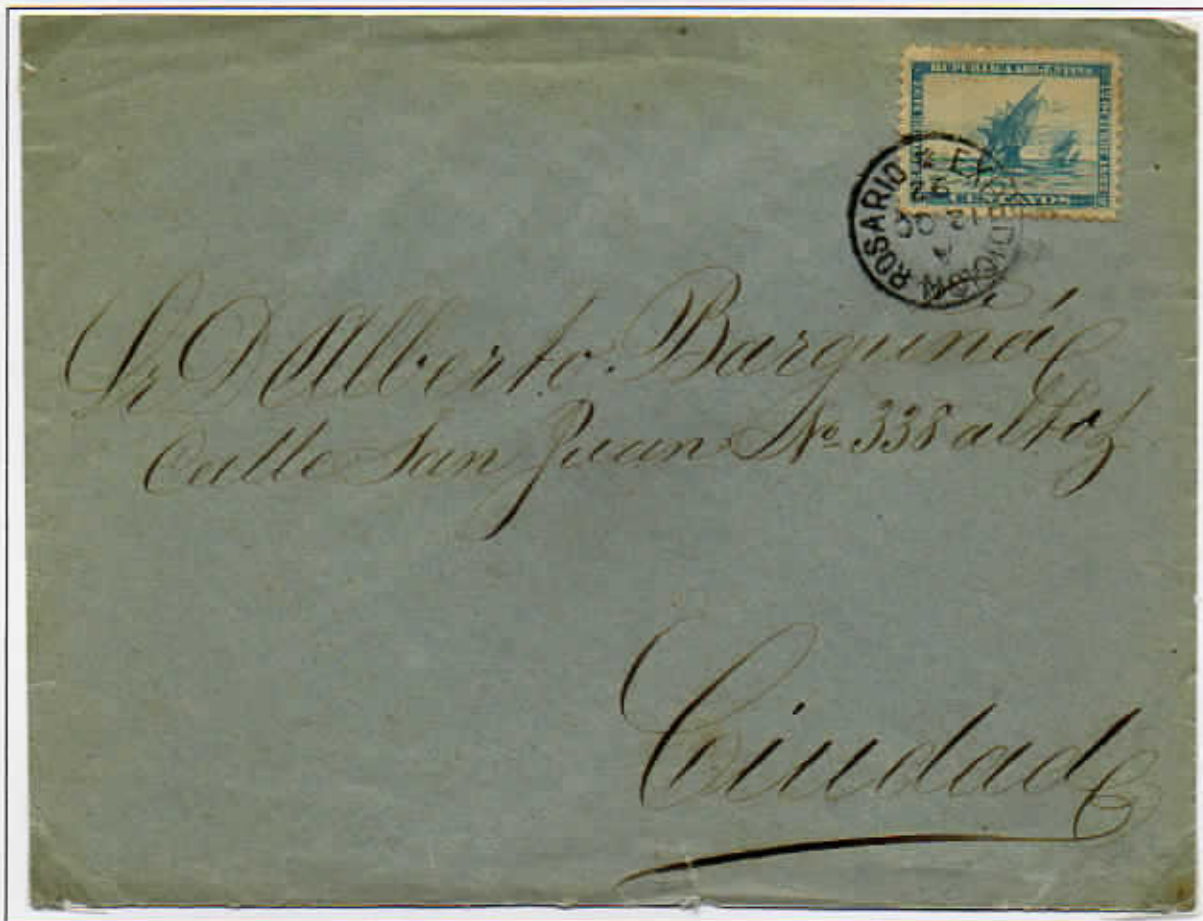 REPUBLICA ARGENTINA
CENTAVOS
EXPEDICION ROSARIO
12 OC
92
Sr D Alberto Barguná
Calle San Juan No 338 altos
Ciudad